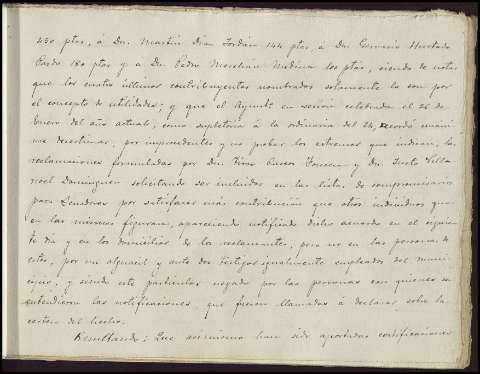 450 ptas, á Dn. Martin Diaz Jordán 144 ptas, á Dn.
Pardo 180 ptas y a Dn. Pedro Merchán Medina los ptas, siendo de notar
que los cuatro últimos contribuyentes nombrados solamente lo son por
el concepto de utilidades; y que el Ayunto en sesión celebrada el 26 de
Enero del año actual, como supletoria á la ordinaria del 24, acordó unáni
me desestimar, por improcedentes y no probar los extremos que indican, las
reclamaciones formuladas por Dn. Cuevas y Dn. Justo Villa
rroel Dominguez solicitando ser incluidos en las listas de compromisarios
para Senadores por satisfacer más contribución que otros individuos que
en las mismas figuran, apareciendo notificado dicho acuerdo en el siguien
te dia y en los domicilios de los reclamantes, pero no en las personas de
estos, por un alguacil y ante dos testigos igualmente empleados del muni
cipio, y siendo este particular negado por las personas con quienes se
entendieron las notificaciones, que fueron llamadas á declarar sobre la
certeza del hecho.
Resultando: Que asimismo han sido aportadas certificaciones